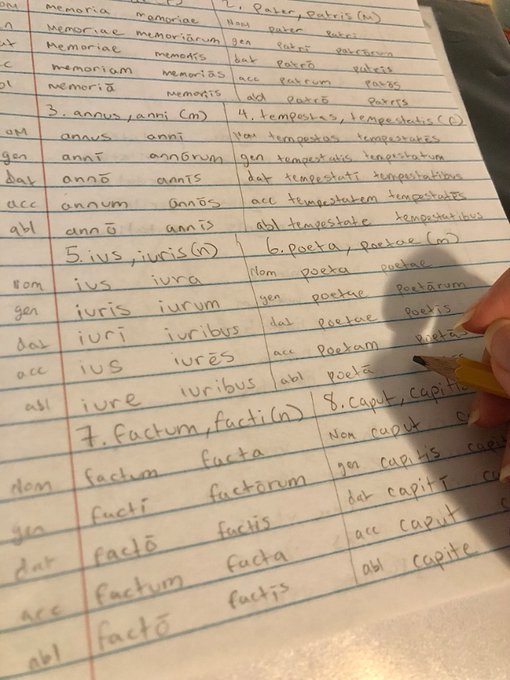 memoria memoriae
memoriae memoriārum
memoriae memorīs
memoriam memoriās
memoriā memorīs
2. pater, patris (m)
Nom pater patrī
gen patrī patrōrum
dat patrō patrīs
acc patrum patrōs
abl patrō patrīs
3. annus, anni (m)
annus annī
gen annī annōrum
dat annō annīs
acc annum annōs
abl annō annīs
4. tempestas, tempestatis (f)
Nom tempestas tempestatēs
gen tempestatis tempestatum
dat tempestatī tempestatibus
acc tempestatem tempestatēs
abl tempestate tempestatibus
5. ius, iuris (n)
Nom ius iura
gen iuris iurum
dat iurī iuribus
acc ius iurēs
abl iure iuribus
6. poeta, poetae (m)
Nom poeta poetae
gen poetae poetārum
dat poetae poetīs
acc poetam
abl poetā
7. factum, facti (n)
Nom factum facta
gen factī factōrum
dat factō factīs
acc factum facta
abl factō factīs
8. caput,
Nom caput
gen capitis
dat capitī
acc caput
abl capite